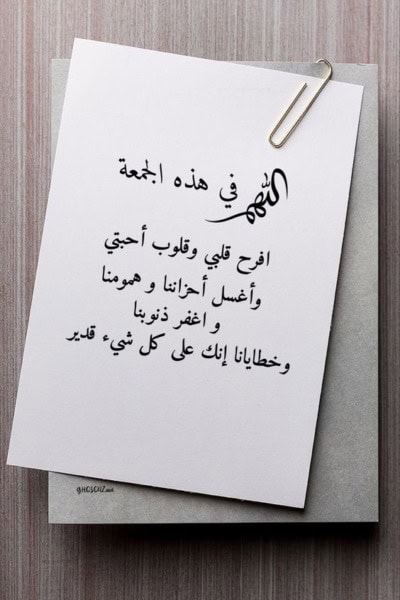 اللهم في هذه الجمعة
افرح قلبي وقلوب أحبتي
وأغسل أحزاننا و همومنا
و اغفر ذنوبنا
وخطايانا إنك على كل شيء قدير